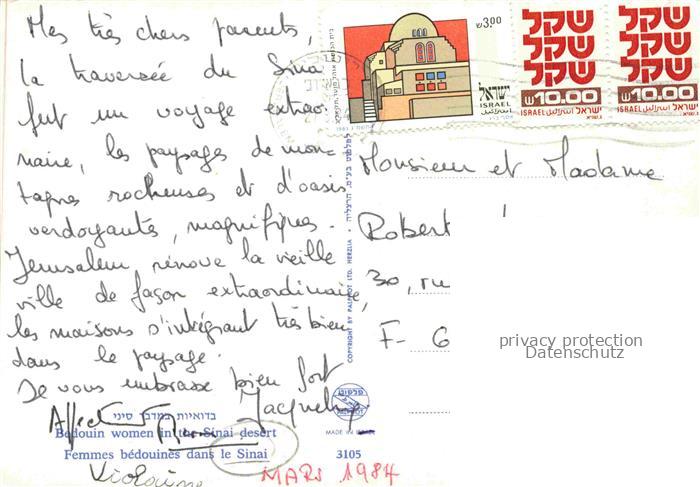 Mes très chers parents,
la traversée du Sinaï
fut un voyage extraor-
naire, les paysages de mon-
tagnes rocheuses et d'oasis
verdoyants, magnifiques.
Jerusalem, rénove la vieille
ville de façon extraordinaire,
les maisons s'intégrant très bien
dans le paysage.
Je vous embrasse bien fort
Jacqueline
בדואיות במדבר סיני
Bedouin women in the Sinai desert
Femmes bédouines dans le Sinai
3105
MARS 1984
PALPHOT
MADE IN ISRAEL
COPYRIGHT BY PALPHOT LTD. HERZLIA
₪3.00
ישראל
ISRAEL
שקל
שקל
שקל
₪10.00
ISRAEL ישראל
שקל
שקל
שקל
₪10.00
ISRAEL ישראל
Monsieur et Madame
Robert
30, ru
F- 6
privacy protection
Datenschutz